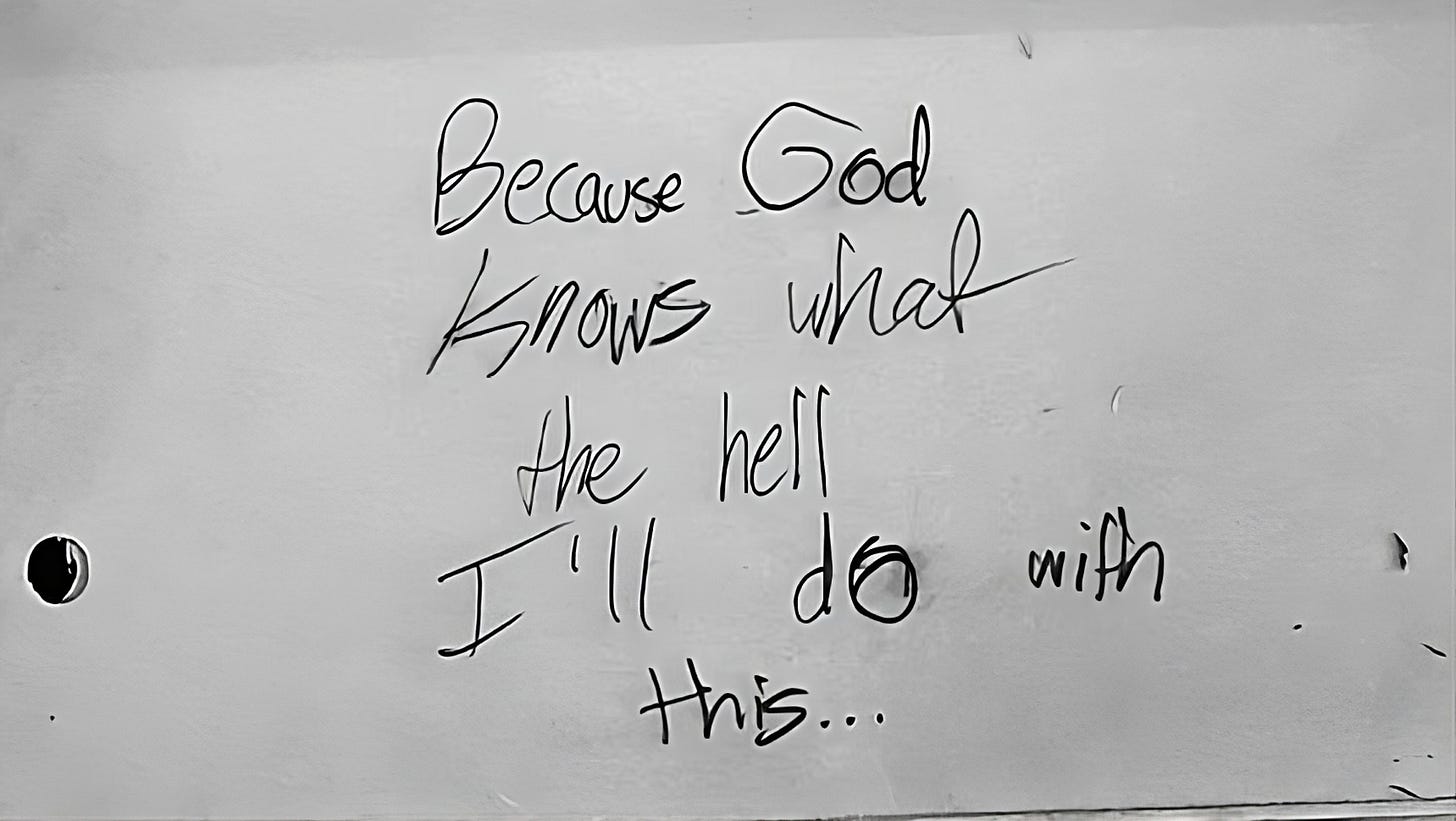 Because God
knows what
the hell
I'll do with
this...